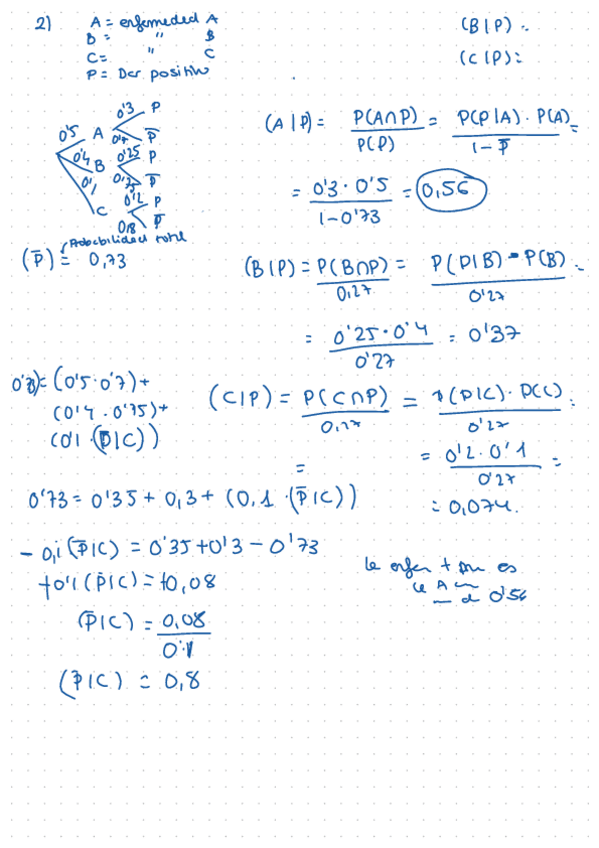 2) A = enfermeded A
B = " B
C = " C
P = Dar positivo
(B|P) =
(C|P) =
0'5 A 0'3 P
0'7 P̅
0'4 B 0'25 P
0'75 P̅
0'1 C 0'2 P
0'8 P̅
Probabilidad total
(P̅) = 0,73
(A|P) = P(A∩P) / P(P) = P(P|A) · P(A) / 1 - P̅ =
= 0'3 · 0'5 / 1 - 0'73 = 0,56
(B|P) = P(B∩P) / 0,27 = P(P|B) · P(B) / 0'27 =
= 0'25 · 0'4 / 0'27 = 0'37
0'73 = (0'5 · 0'7) +
(0'4 · 0'75) +
(0'1 · (P̅|C))
(C|P) = P(C∩P) / 0,27 = P(P|C) · P(C) / 0'27 =
= 0'2 · 0'1 / 0'27 =
= 0,074.
=
0'73 = 0'35 + 0,3 + (0,1 · (P̅|C))
- 0,1 (P̅|C) = 0'35 + 0'3 - 0'73
+0'1 (P̅|C) = +0,08
(P̅|C) = 0,08 / 0'1
(P̅|C) = 0,8
la enfer + es
A
0'56